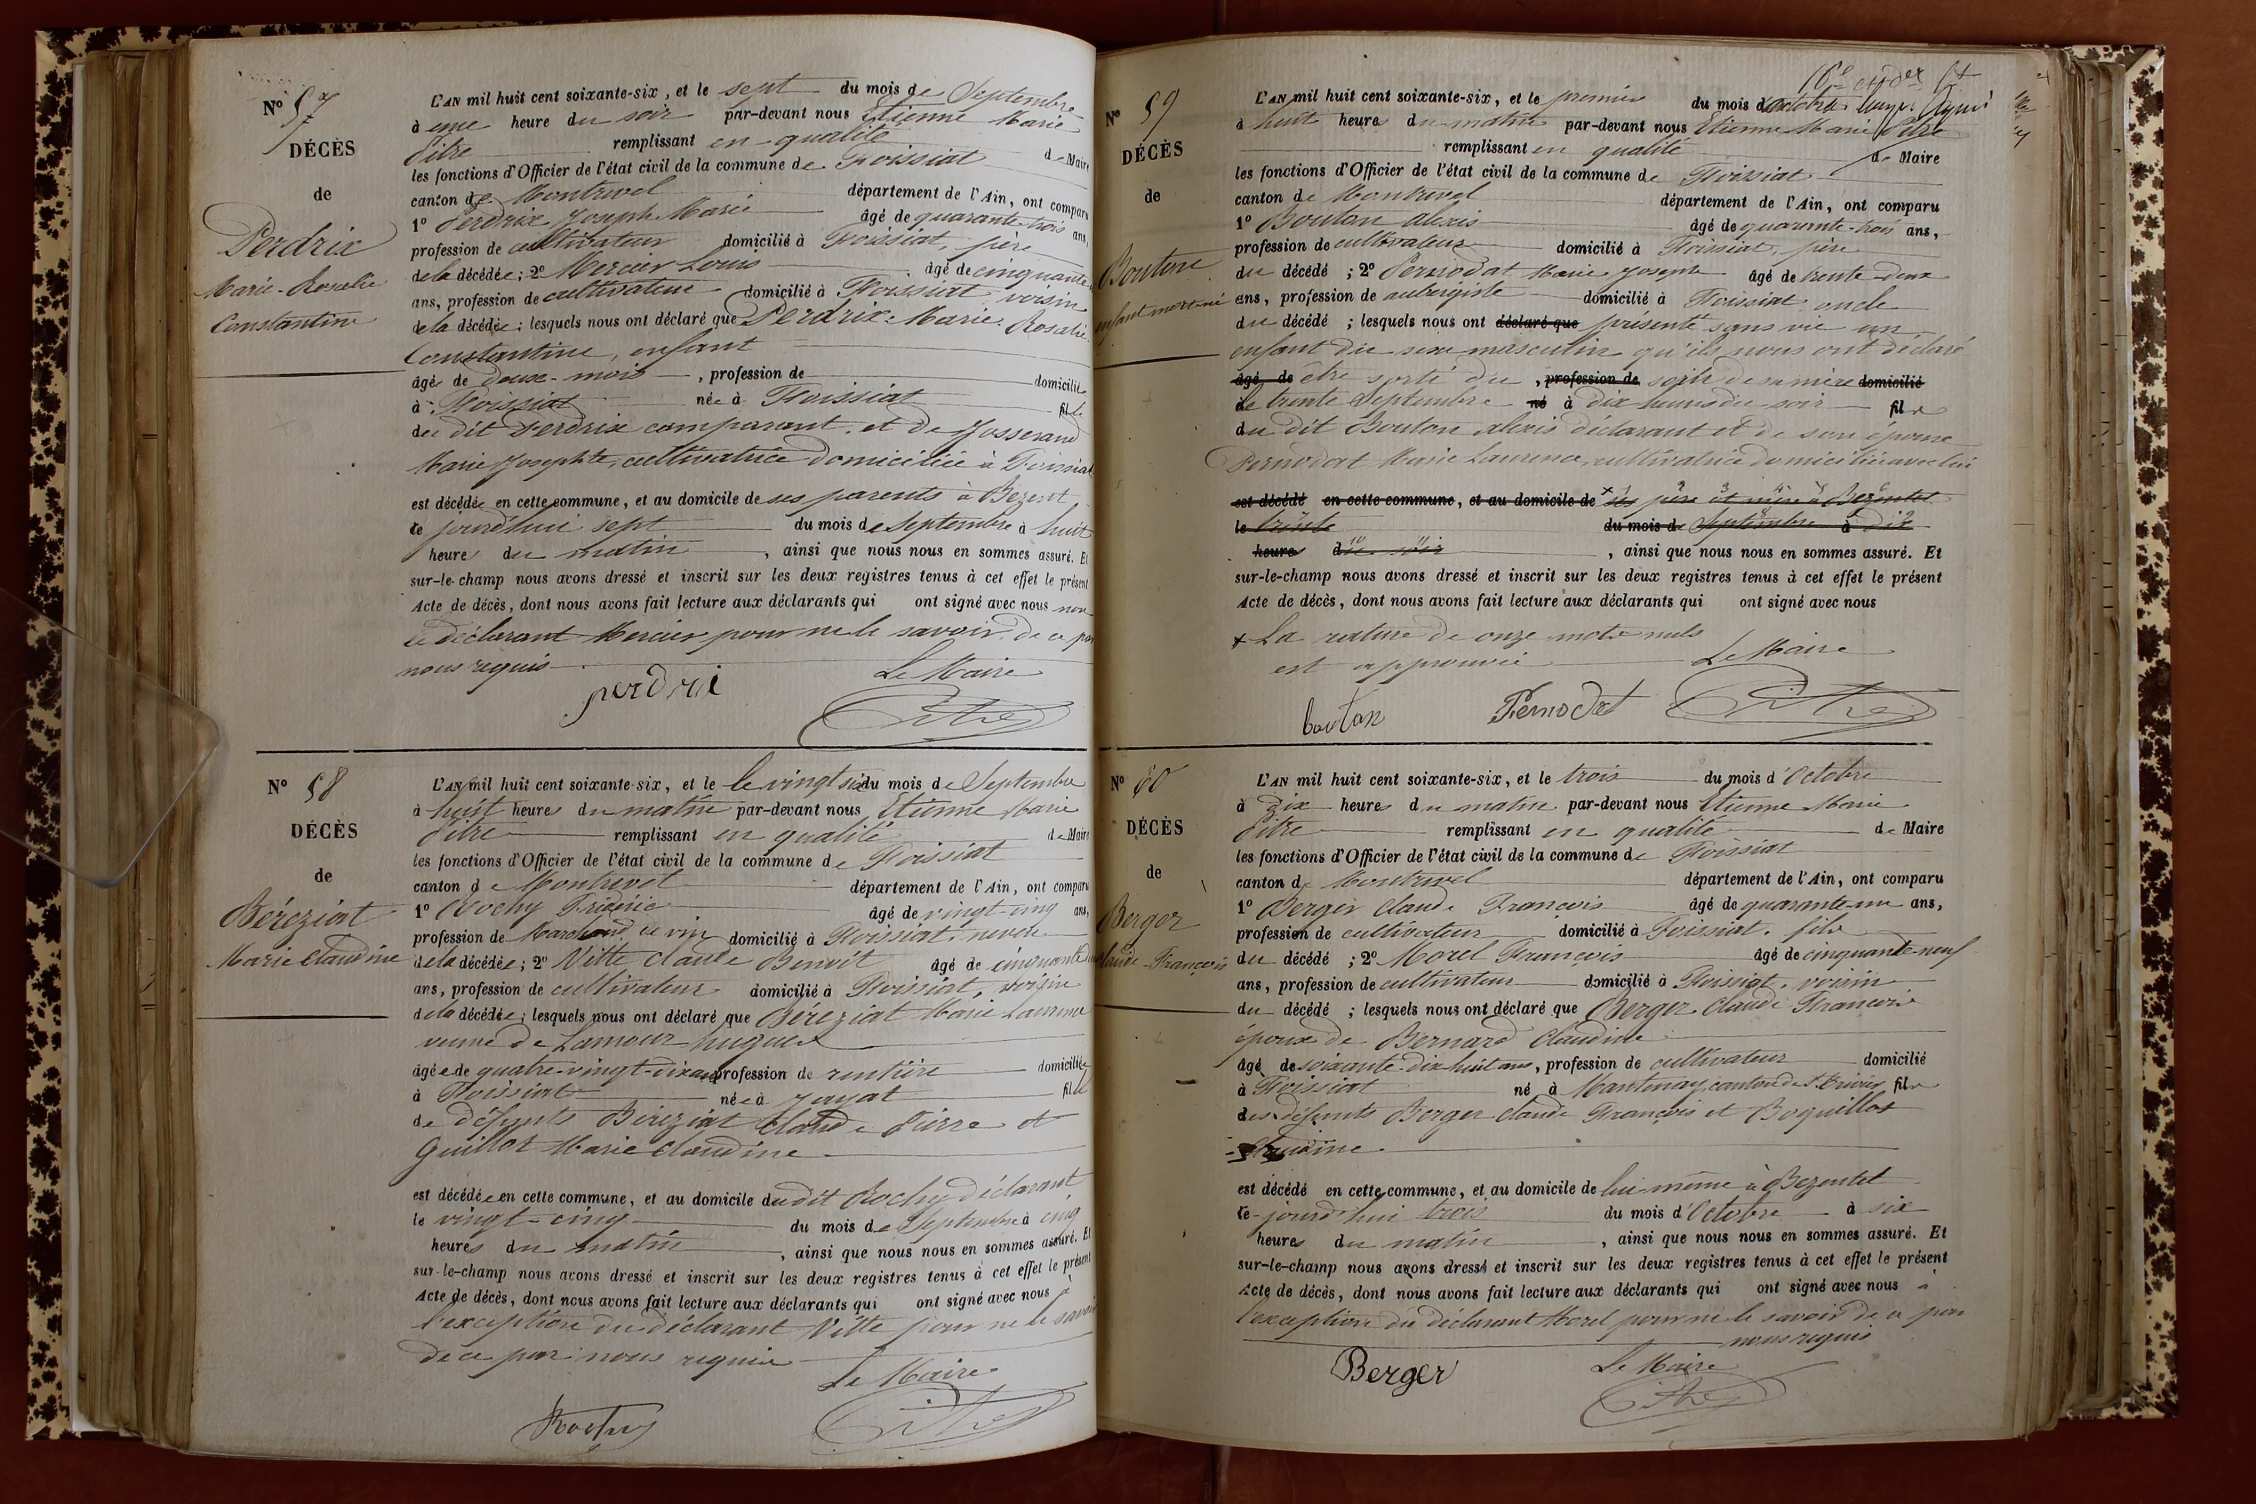 N° 57
DÉCÈS
de
Perdrix
Marie-Rosalie
Constantine
L'AN mil huit cent soixante-six, et le sept du mois de Septembre
à une heure du soir par-devant nous Etienne Marie
Pitre remplissant en qualité de Maire
les fonctions d'Officier de l'état civil de la commune de Foissiat
canton de Montrevel département de l'Ain, ont comparu
1° Perdrix Joseph Marie âgé de quarante-trois ans,
profession de cultivateur domicilié à Foissiat, père
de la décédée; 2° Mercier Louis âgé de cinquante
ans, profession de cultivateur domicilié à Foissiat voisin
de la décédée; lesquels nous ont déclaré que Perdrix Marie Rosalie
Constantine, enfant
âgée de douze mois, profession de domiciliée
à Foissiat née à Foissiat fille
du dit Perdrix comparant et de Josserand
Marie Josephte, cultivatrice domiciliée à Foissiat
est décédée en cette commune, et au domicile de ses parents à Bezent
le jourd'hui sept du mois de Septembre à huit
heures du matin, ainsi que nous nous en sommes assuré. Et
sur-le-champ nous avons dressé et inscrit sur les deux registres tenus à cet effet le présent
Acte de décès, dont nous avons fait lecture aux déclarants qui ont signé avec nous non
le déclarant Mercier pour ne le savoir de ce par
nous requis
Le Maire
perdri
Pitre
N° 58
DÉCÈS
de
Béréziat
Marie Claudine
L'AN mil huit cent soixante-six, et le le vingt six du mois de Septembre
à huit heures du matin par-devant nous Etienne Marie
Pitre remplissant en qualité de Maire
les fonctions d'Officier de l'état civil de la commune de Foissiat
canton de Montrevel département de l'Ain, ont comparu
1° Rochy âgé de vingt-cinq ans,
profession de Marchand de vin domicilié à Foissiat, neveu
de la décédée; 2° Vitte Claude Benoit âgé de cinquante
ans, profession de cultivateur domicilié à Foissiat, voisin
de la décédée; lesquels nous ont déclaré que Béréziat Marie
veuve de Lamour hugues
âgée de quatre-vingt-dix ans profession de rentière domiciliée
à Foissiat née à Jayat fille
de défunts Béréziat Claude Pierre et
Guillot Marie Claudine
est décédée en cette commune, et au domicile du dit Rochy déclarant
le vingt-cinq du mois de Septembre à cinq
heures du matin, ainsi que nous nous en sommes assuré. Et
sur-le-champ nous avons dressé et inscrit sur les deux registres tenus à cet effet le présent
Acte de décès, dont nous avons fait lecture aux déclarants qui ont signé avec nous à
l'exception du déclarant Vitte pour ne le savoir
de ce par nous requis
Le Maire
Rochy
Pitre
N° 59
DÉCÈS
de
Bouton
enfant mort-né
L'AN mil huit cent soixante-six, et le premier du mois d'octobre
à huit heures du matin par-devant nous Etienne Marie Pitre
remplissant en qualité de Maire
les fonctions d'Officier de l'état civil de la commune de Foissiat
canton de Montrevel département de l'Ain, ont comparu
1° Bouton alexis âgé de quarante-trois ans,
profession de cultivateur domicilié à Foissiat, père
du décédé; 2° Pernodat Marie Joseph âgé de trente deux
ans, profession de aubergiste domicilié à Foissiat oncle
du décédé; lesquels nous ont déclaré que présenté sans vie un
enfant du sexe masculin qu'ils nous ont déclaré
âgé de etre sorti du, profession de sein de sa mère domicilié
le trente Septembre né à dix heures du soir fils
du dit Bouton alexis déclarant et de son épouse
Pernodat Marie Laurence, cultivatrice domiciliée avec lui
est décédé en cette commune, et au domicile de ses père et mère à Bezentet
le trente du mois de Septembre à dix
heures du soir, ainsi que nous nous en sommes assuré. Et
sur-le-champ nous avons dressé et inscrit sur les deux registres tenus à cet effet le présent
Acte de décès, dont nous avons fait lecture aux déclarants qui ont signé avec nous
+ La rature de onze mots nuls
est approuvée
Le Maire
bouton
Pernodat
Pitre
N° 60
DÉCÈS
de
Berger
Claude-François
L'AN mil huit cent soixante-six, et le trois du mois d'Octobre
à dix heures du matin par-devant nous Etienne Marie
Pitre remplissant en qualité de Maire
les fonctions d'Officier de l'état civil de la commune de Foissiat
canton de Montrevel département de l'Ain, ont comparu
1° Berger Claude François âgé de quarante-un ans,
profession de cultivateur domicilié à Foissiat, fils
du décédé; 2° Morel François âgé de cinquante-neuf
ans, profession de cultivateur domicilié à Foissiat, voisin
du décédé; lesquels nous ont déclaré que Berger Claude François
époux de Bernard Claudine
âgé de soixante-dix huit ans, profession de cultivateur domicilié
à Foissiat né à Mantenay, canton de St Trivier fils
des défunts Berger Claude François et Boguillot
Claudine
est décédé en cette commune, et au domicile de lui-même à Bezentet
le jourd'hui trois du mois d'Octobre à six
heures du matin, ainsi que nous nous en sommes assuré. Et
sur-le-champ nous avons dressé et inscrit sur les deux registres tenus à cet effet le présent
Acte de décès, dont nous avons fait lecture aux déclarants qui ont signé avec nous à
l'exception du déclarant Morel pour ne le savoir de ce par
nous requis
Le Maire
Berger
Pitre